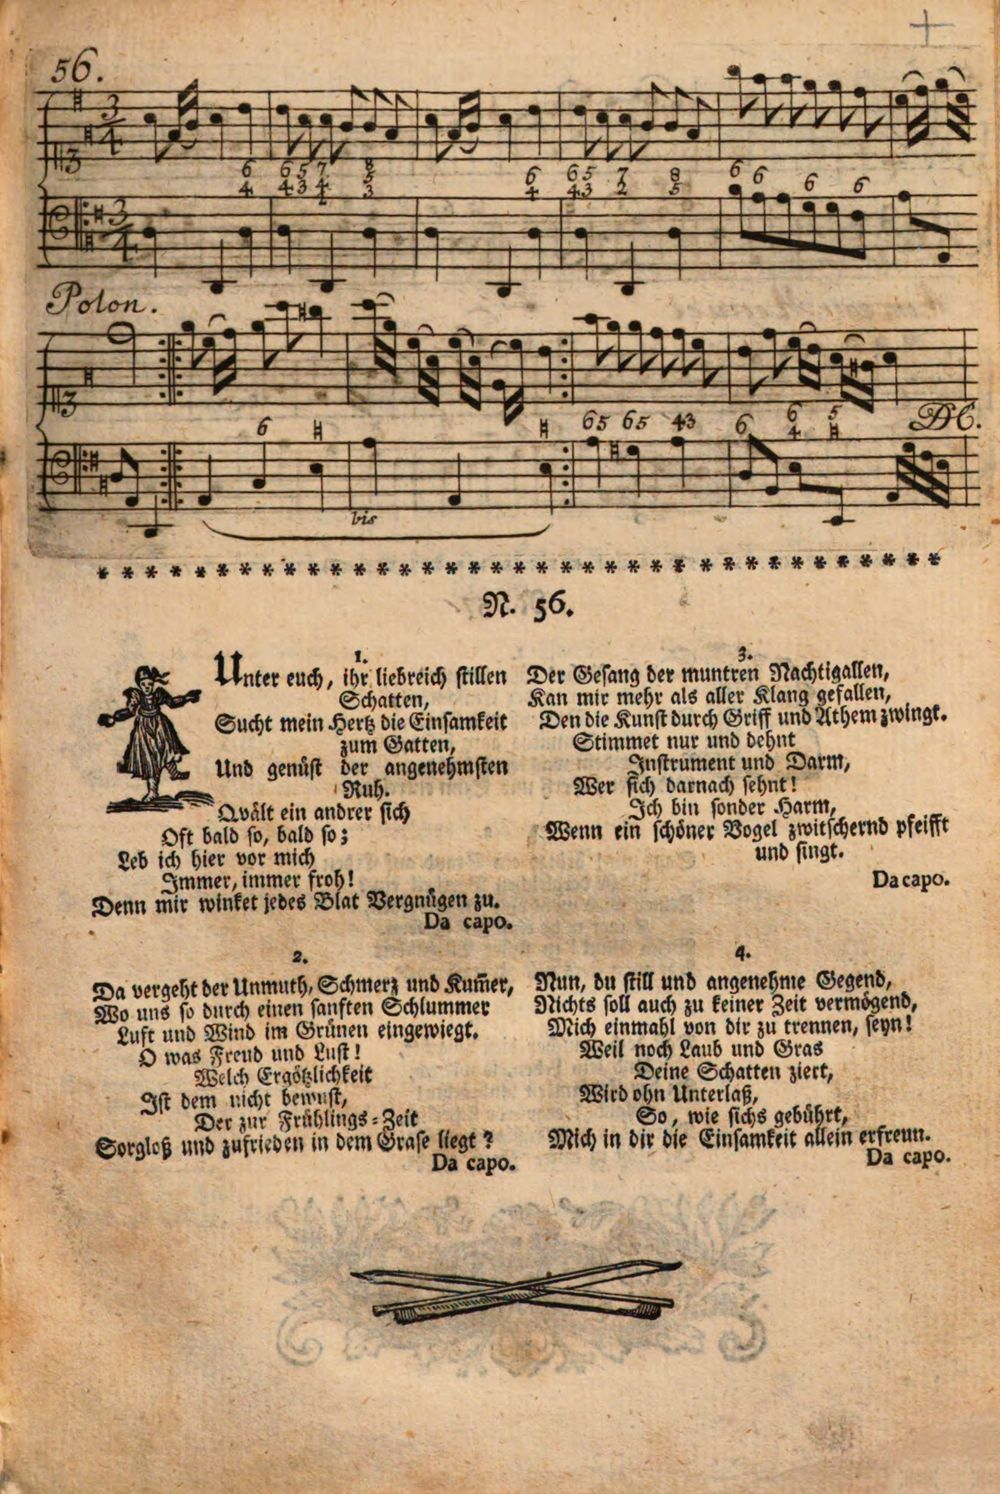 56.
3
4
6 6 5 7 8 6 6 5 7 8 6 6 6 6
4 4 3 4 5 4 4 3 2 5
2 3
3
4
Polon.
6 6 5 6 5 4 3 6 6 5
4
D C.
bis
N. 56.
1.
Unter euch, ihr liebreich stillen
Schatten,
Sucht mein Hertz die Einsamkeit
zum Gatten,
Und genüst der angenehmsten
Ruh.
Qvält ein andrer sich
Oft bald so, bald so;
Leb ich hier vor mich
Immer, immer froh!
Denn mir winket jedes Blat Vergnügen zu.
Da capo.
2.
Da vergeht der Unmuth, Schmerz und Kum̄er,
Wo uns so durch einen sanften Schlummer
Luft und Wind im Grünen eingewiegt.
O was Freud und Lust!
Welch Ergötzlichkeit
Ist dem nicht bewust,
Der zur Frühlings-Zeit
Sorgloß und zufrieden in dem Grase liegt?
Da capo.
3.
Der Gesang der muntren Nachtigallen,
Kan mir mehr als aller Klang gefallen,
Den die Kunst durch Griff und Athem zwingt.
Stimmet nur und dehnt
Instrument und Darm,
Wer sich darnach sehnt!
Ich bin sonder Harm,
Wenn ein schöner Vogel zwitschernd pfeifft
und singt.
Da capo.
4.
Nun, du still und angenehme Gegend,
Nichts soll auch zu keiner Zeit vermögend,
Mich einmahl von dir zu trennen, seyn!
Weil noch Laub und Gras
Deine Schatten ziert,
Wird ohn Unterlaß,
So, wie sichs gebührt,
Mich in dir die Einsamkeit allein erfreun.
Da capo.